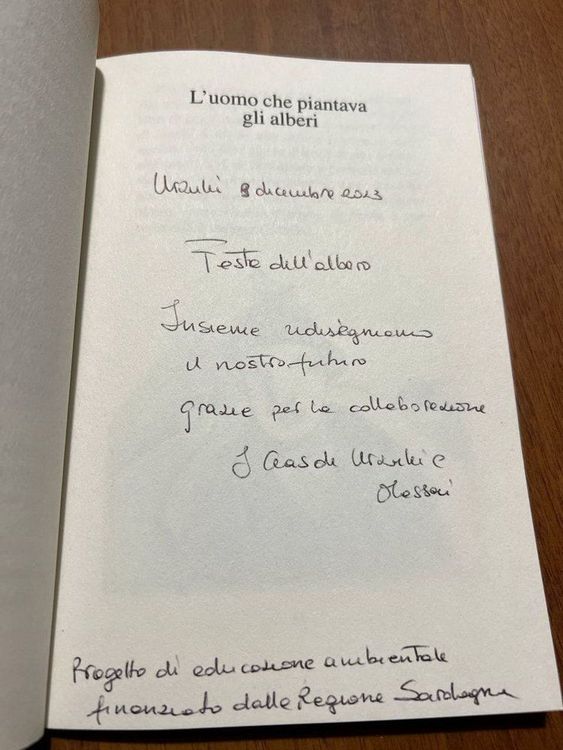 L'uomo che piantava
gli alberi
Urzulei 8 dicembre 2023
Festa dell'albero
Insieme ridisegniamo
il nostro futuro
grazie per la collaborazione
I Ceas di Urzulei e
Progetto di educazione ambientale
finanziato dalla Regione Sardegna